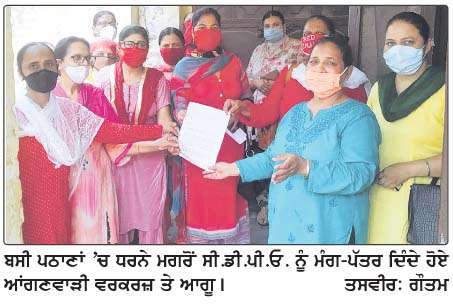 ਬਸੀ ਪਠਾਣਾਂ 'ਚ ਧਰਨੇ ਮਗਰੋਂ ਸੀ.ਡੀ.ਪੀ.ਓ. ਨੂੰ ਮੰਗ-ਪੱਤਰ ਦਿੰਦੇ ਹੋਏ
ਆਂਗਣਵਾੜੀ ਵਰਕਰਜ਼ ਤੇ ਆਗੂ। ਤਸਵੀਰ: ਗੌਤਮ